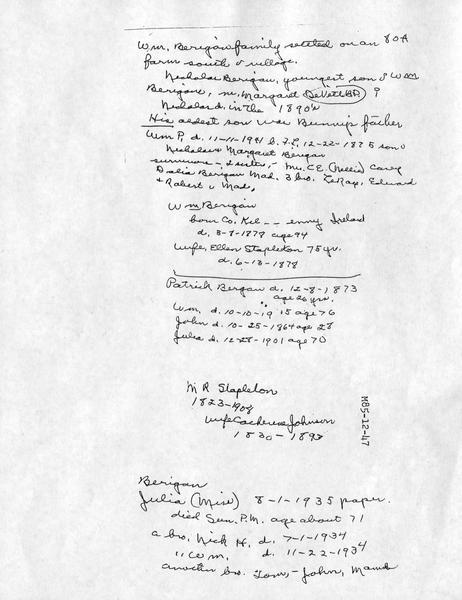 Wm. Berigan family settled on an 80 A
farm south of village.
Nicholas Berigan, youngest son of Wm
Berigan, m. Margaret ?
Nicholas d. in the 1890's
His oldest son was Bunny's father
Wm P. d. 11-11-1941 b. 12-22-1875 son of
Nicholas & Margaret Berigan
survivors - 2 sisters, - Mrs. C.E. (Nellie) Carey
Berigan Mad. 3 bro. LeRay, Edward
& Robert Mad.
Wm Berigan
born Co. Kil -- enny Ireland
d. 3-8-1878 age 94
wife, Ellen Stapleton 75 yr.
d. 6-13-1878
Patrick Bergan d. 12-8-1873
age 26 yrs.
Wm. d. 10-10-1915 age 76
John d. 10-25-1864 age 28
Julia d. 12-28-1901 age 70
M R Stapleton
1823-1908
wife Catherine Johnson
1830-1893
M85-12-47
Berigan
Julia (Miss) 8-1-1935 paper.
died Sun. P.M. age about 71
a bro. Nick H. d. 7-1-1934
" Wm. d. 11-22-1934
another bro. Tom, - John,